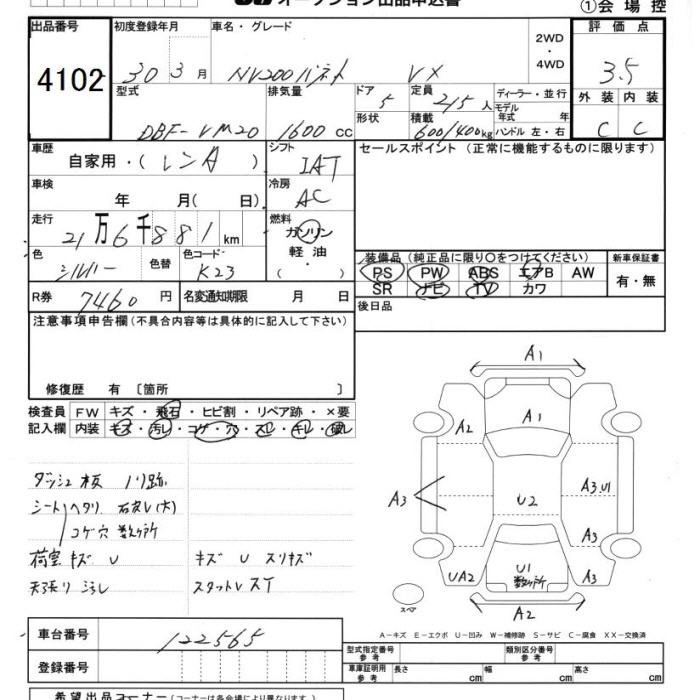 オークション出品申込書
①会場控
出品番号 初度登録年月 車名・グレード 評価点
4102 30 3 月 NV200バネット VX 2WD・4WD 3.5
型式 排気量 ドア 定員 ディーラー・並行 外装 内装
DBF-VM20 1600 cc 5 2/5 人 モデル年式 年 C C
形状 積載 600/400 kg ハンドル 左・右
車歴 自家用・(レンタ) シフト IAT セールスポイント(正常に機能するものに限ります)
車検 年 月(日) 冷房 AC
走行 21万6千881km 燃料 ガソリン・軽油・( )
色 シルバー 色替 色コード K23
装備品(純正品に限り○をつけてください) 新車保証書
PS PW ABS エアB AW 有・無
SR ナビ TV カワ
R券 7460 円 名変通知期限 月 日 後日品
注意事項申告欄(不具合内容等は具体的に記入して下さい)
修復歴 有 〔箇所 〕
検査員 FW キズ・飛石・ヒビ割・リペア跡・×要
記入欄 内装 キズ・汚レ・コゲ・穴・スレ・キレ・破レ
ダッシュ板 ノリ跡
シートヘタリ
コゲ穴 数ヶ所
荷室キズ U キズ U スリキズ
天張り
A1
A2 A1
A3 U2 A3.U1
A3
UA2 U1 数ヶ所 A3
スペア A2
A-キズ E-エクボ U-凹み W-補修跡 S-サビ C-腐食 XX-交換済
車台番号 122565
型式指定番号 参考 類別区分番号 参考
登録番号 車庫証明用 参考 長さ cm 幅 cm 高さ cm
希望出品コーナー(コーナーは各会場により異なります)